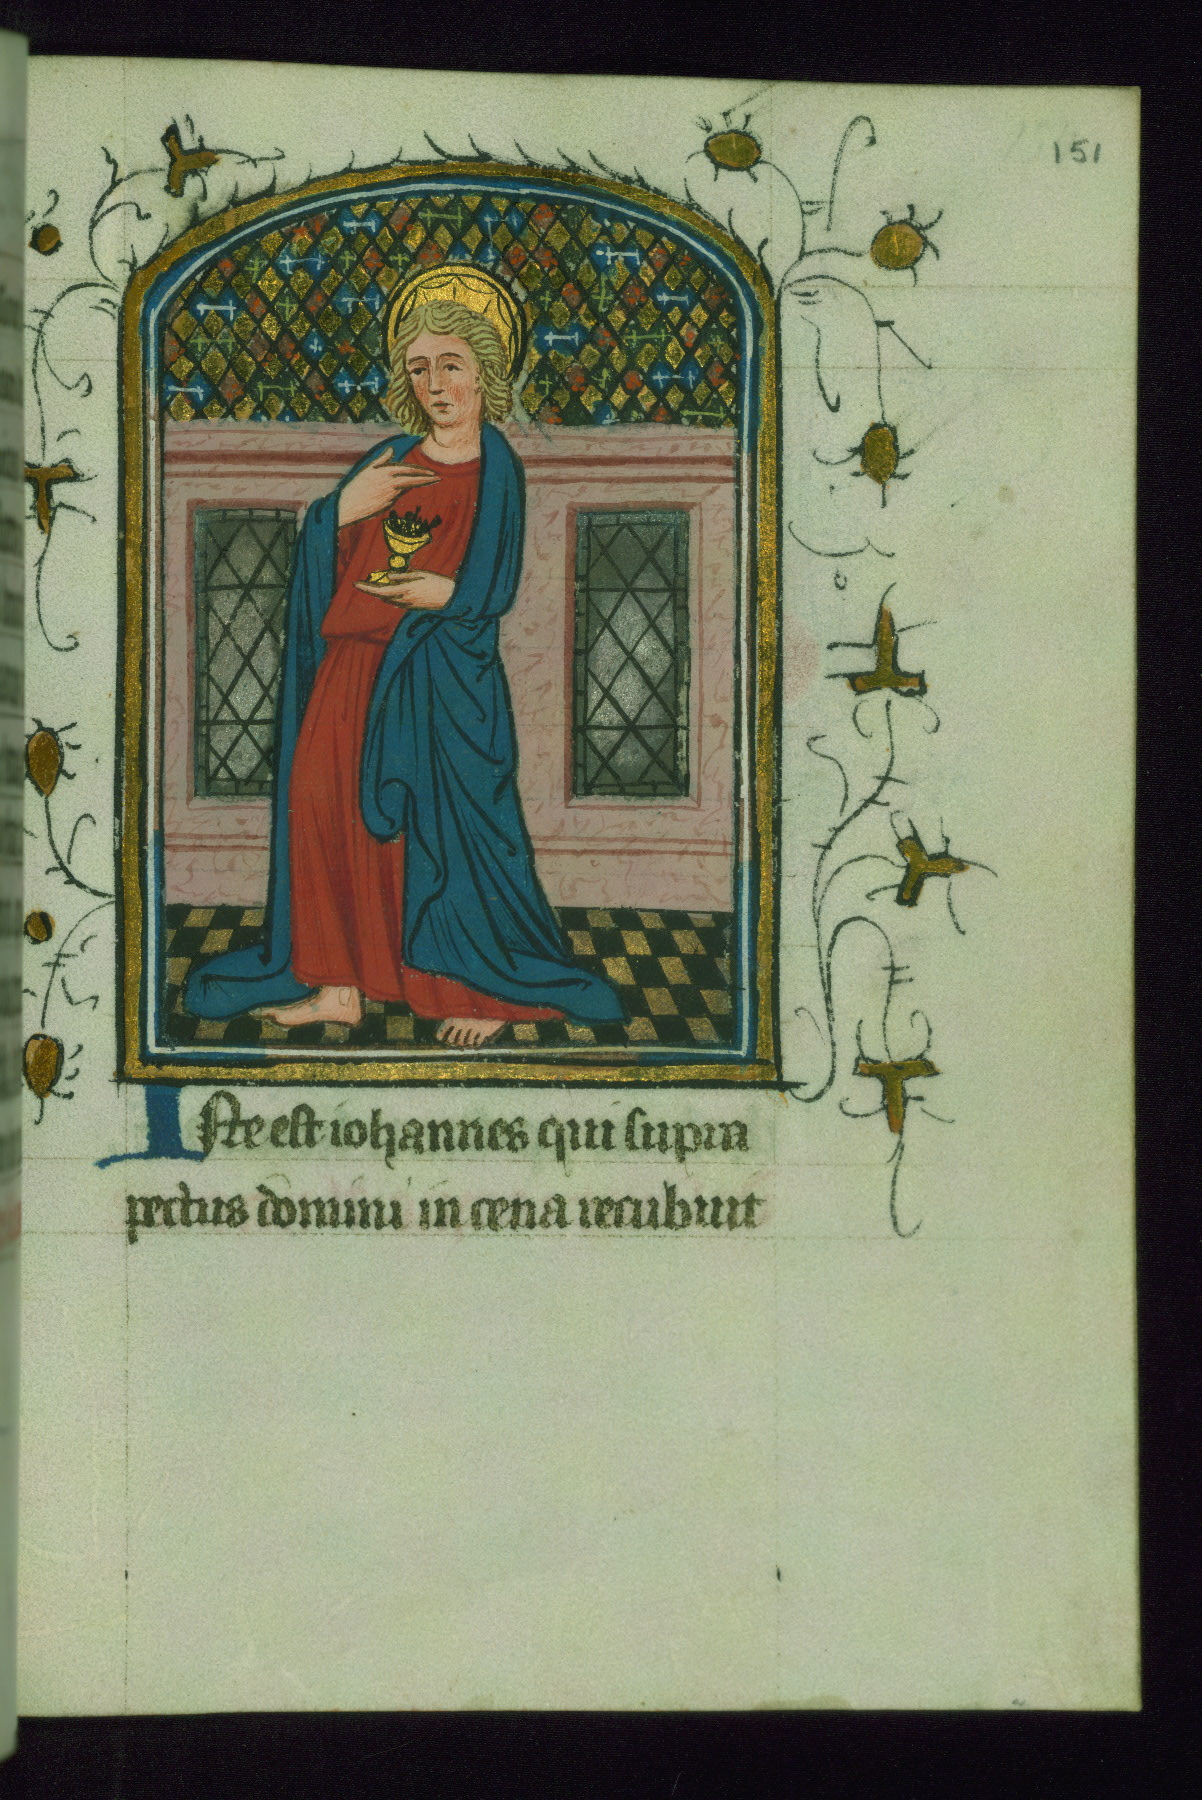 151
Iste est iohannes qui supra
pectus domini in cena recubuit